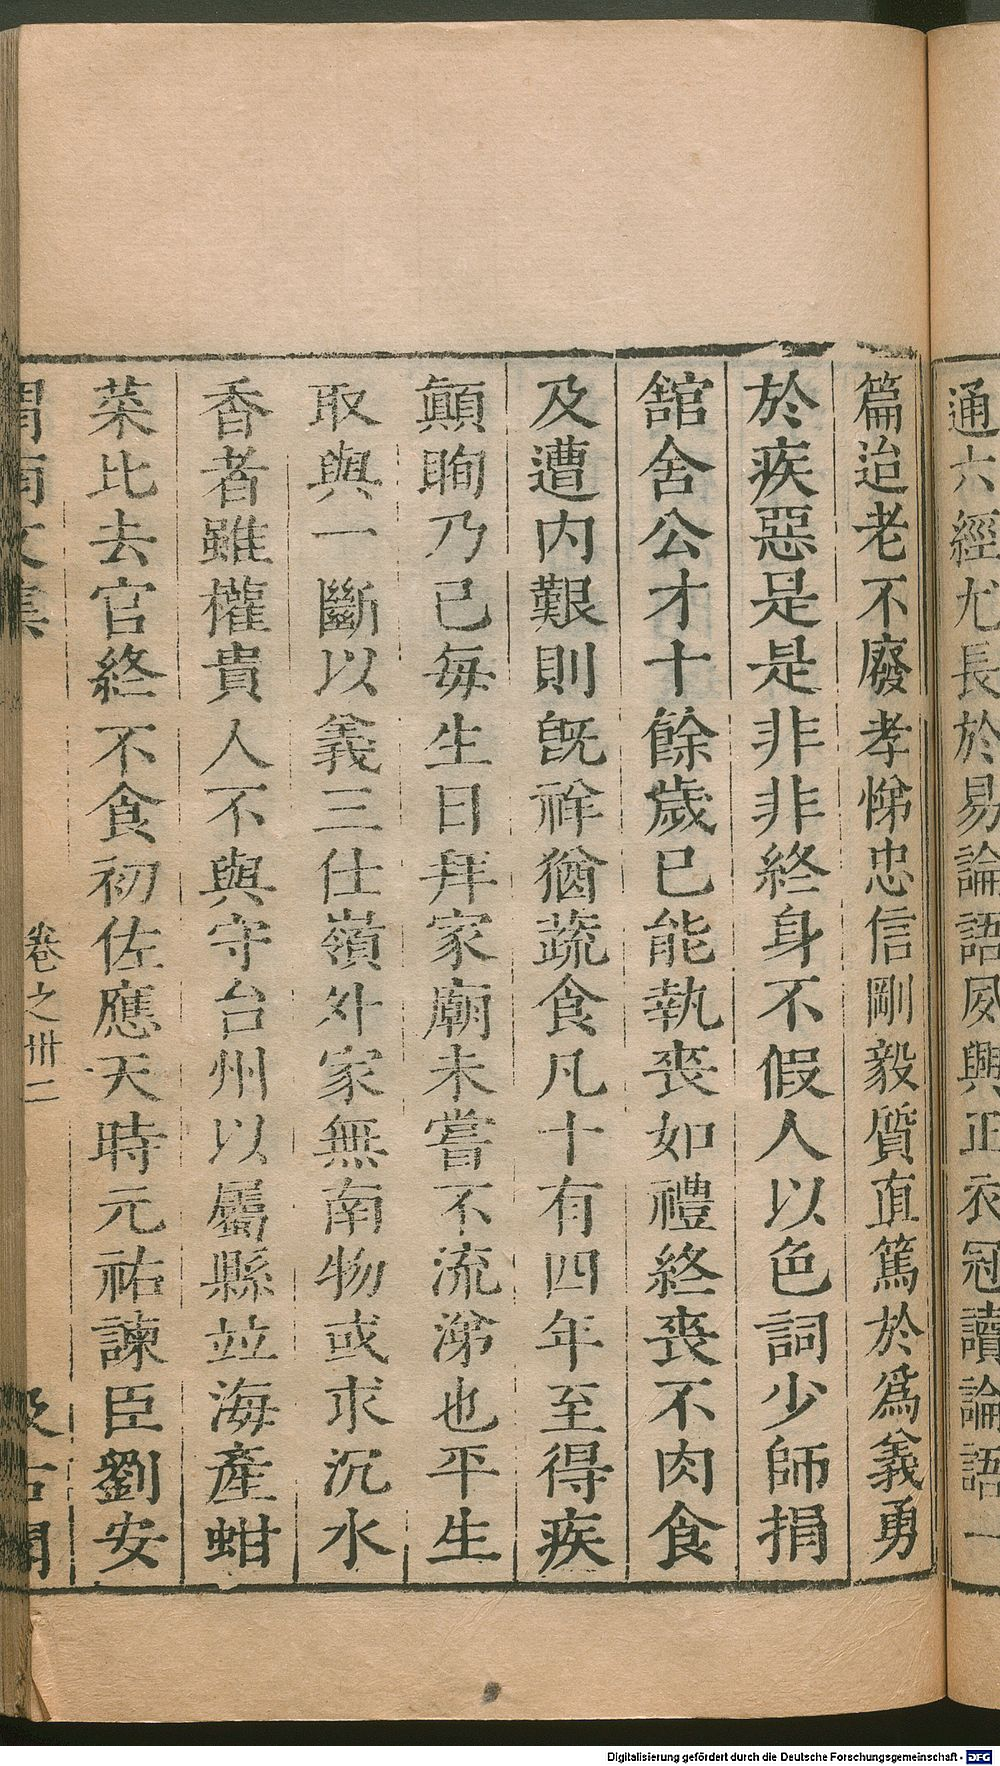 通六經尤長於易論語夙興正衣冠讀論語一
篇迨老不廢孝悌忠信剛毅質直篤於爲義勇
於疾惡是是非非終身不假人以色詞少師捐
館舍公才十餘歲已能執喪如禮終喪不肉食
及遭内艱則旣祥猶蔬食凡十有四年至得疾
顛眴乃已每生日拜家廟未嘗不流涕也平生
取與一斷以義三仕嶺外家無南物或求沉水
香者雖權貴人不與守台州以屬縣竝海產蚶
菜比去官終不食初佐應天時元祐諫臣劉安
渭南文集 卷之卅二 汲古閣
Digitalisierung gefördert durch die Deutsche Forschungsgemeinschaft - DFG